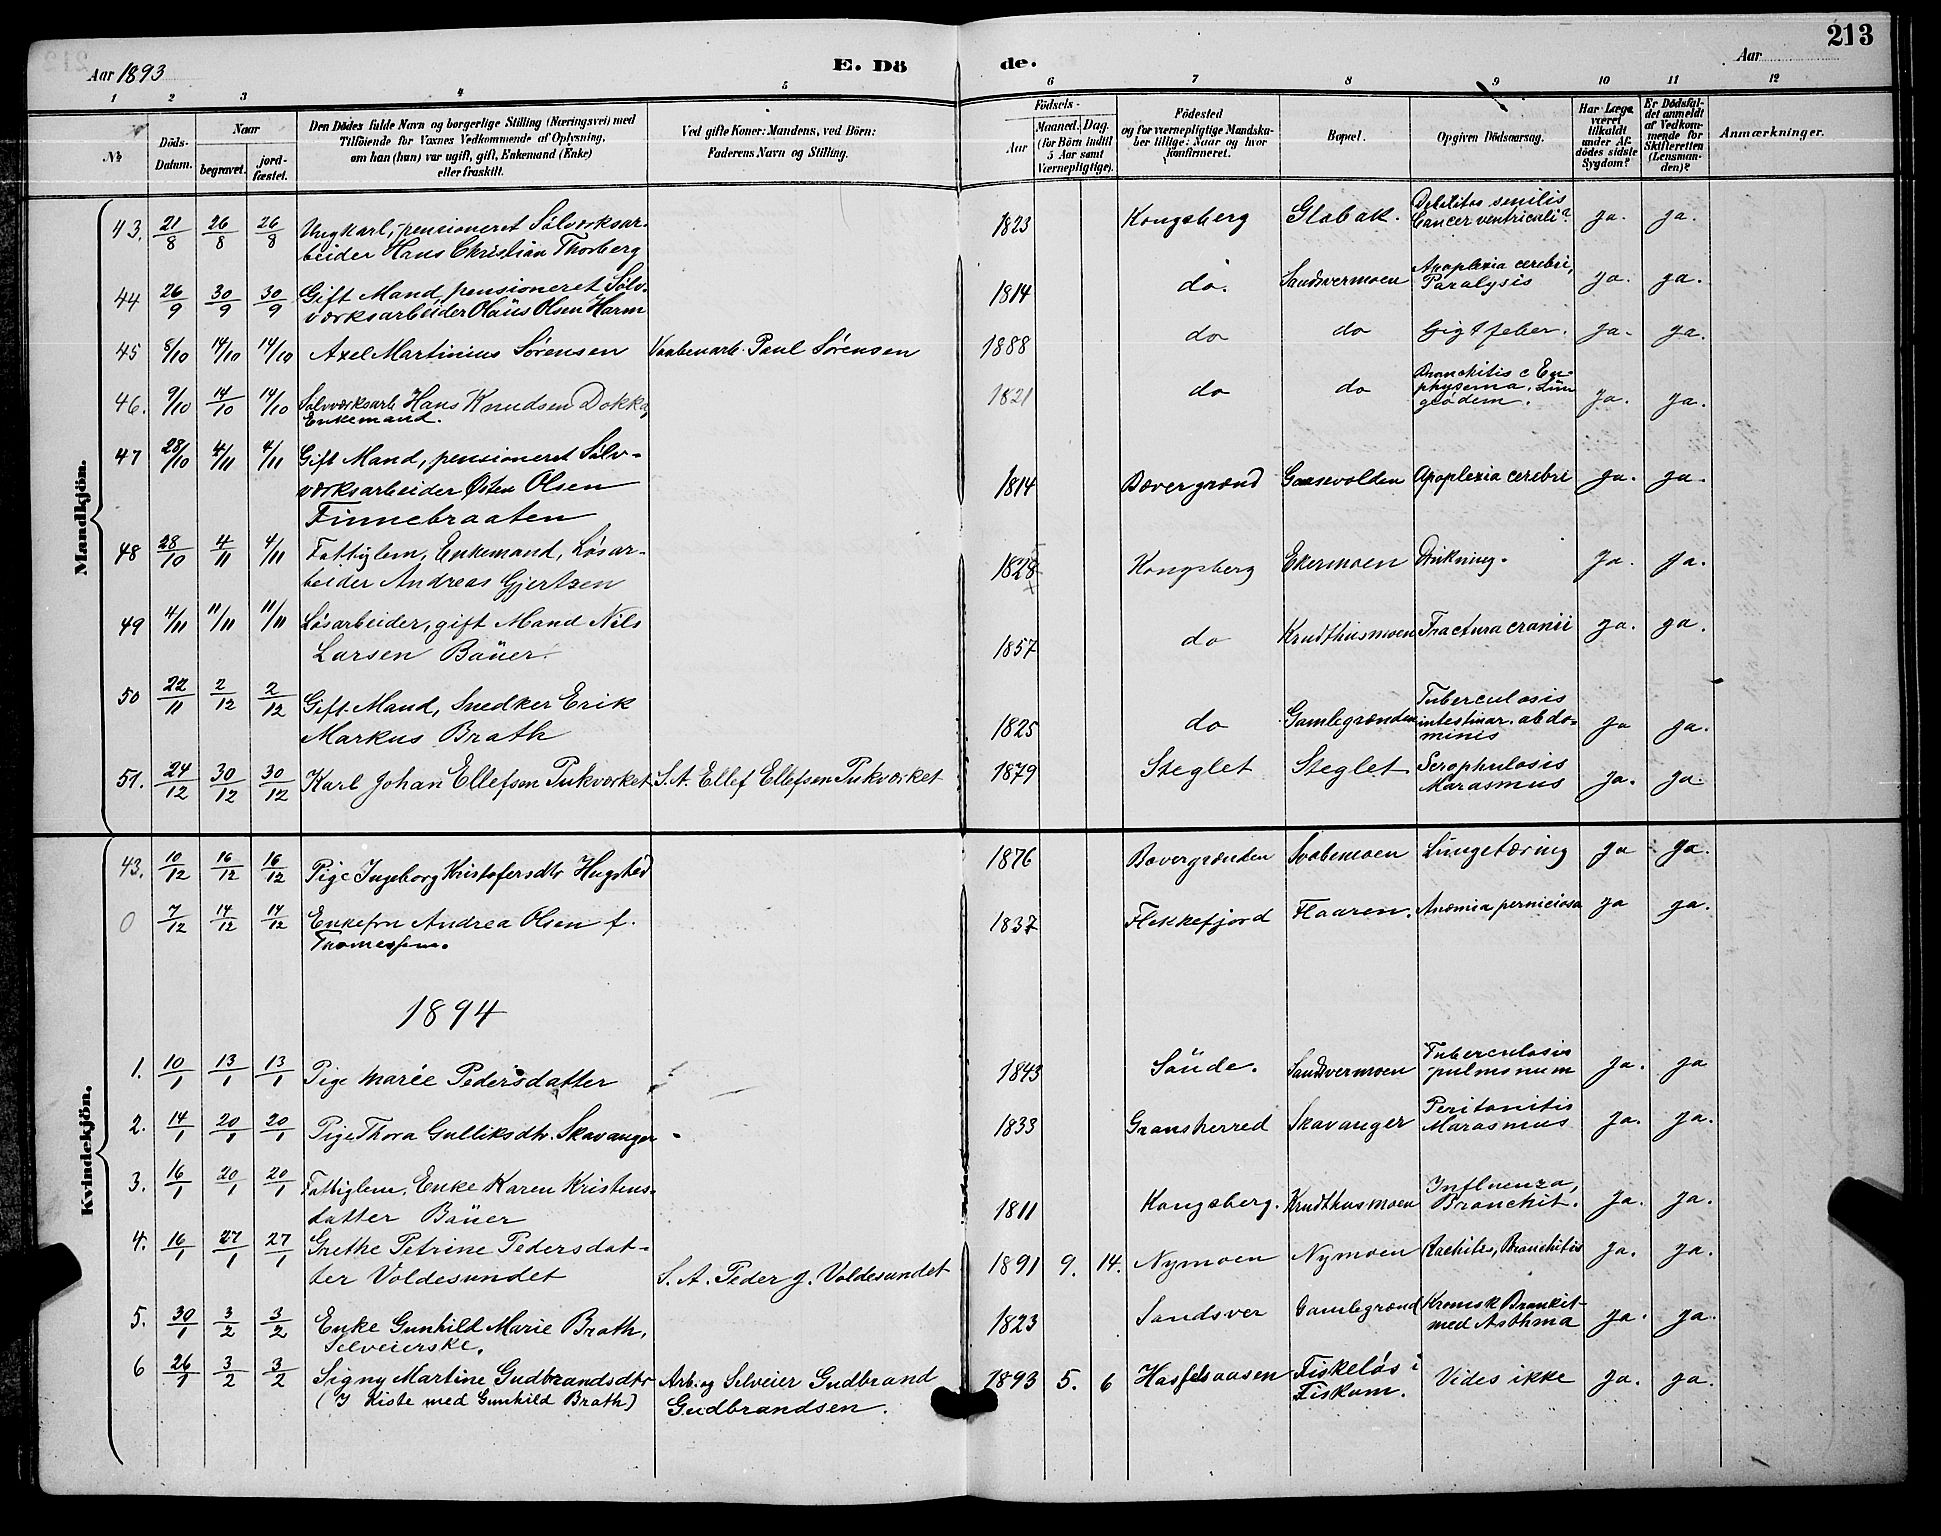 213
Aar 1893
E. Dö
de.
Aar
1 2 3 4 5 6 7 8 9 10 11 12
№
Döds-
Datum.
Naar
begravet.
jord-
fæstet.
Den Dödes fulde Navn og borgerlige Stilling (Næringsvei) med
Tilföiende for Voxnes Vedkommende af Oplysning,
om han (hun) var ugift, gift, Enkemand (Enke)
eller fraskilt.
Ved gifte Koner: Mandens, ved Börn:
Faderens Navn og Stilling.
Födsels-
Aar
Maaned. Dag.
(for Börn indtil
5 Aar samt
Værnepligtige).
Födested
og for værnepligtige Mandska-
ber tillige: Naar og hvor
konfirmeret.
Bopæl.
Opgiven Dödsaarsag.
Har Læge
været
tilkaldt
under Af-
dödes sidste
Sygdom?
Er Dödsfal-
det anmeldt
af Vedkom-
mende for
Skifteretten
(Lensman-
den)?
Anmærkninger.
Mandkjön.
43. 21/8 26/8 26/8 Ungkarl, pensioneret Sølvværksar-
beider Hans Christian Thorberg
1823 Kongsberg Glabak. Debilitas senilis
Cancer ventriculi? ja. ja.
44 26/9 30/9 30/9 Gift Mand, pensioneret Sølv-
værksarbeider Olaüs Olsen Harm
1814 do. Sandsvermoen Apoplexia cerebri,
Paralysis ja. ja.
45 8/10 14/10 14/10 Axel Martinius Sørensen Vaabenarb. Paul Sørensen 1888 do do Gigtfeber. ja. ja.
46. 9/10 14/10 14/10 Sølvværksarb Hans Knudsen Dokka,
Enkemand.
1821 do do Bronchitis c Em-
physema, Lun
geødem. ja. ja.
47 28/10 4/11 4/11 Gift Mand, pensioneret Sølv-
værksarbeider Østen Olsen
Finnebraaten
1814 Bævergrænd Gaasevolden Apoplexia cerebri ja. ja.
48 28/10 4/11 4/11 Fattiglem, Enkemand, Løsar-
beider Andreas Gjertsen
1828 Kongsberg Ekermoen Drukning. ja. ja.
49 4/11 11/11 11/11 Løsarbeider, gift Mand Nils
Larsen Baüer.
1857 do Krudthusmoen Fractura cranii ja. ja.
50 22/11 2/12 2/12 Gift Mand, Snedker Erik
Markus Brath
1825 do Gamlegrænden Tuberculosis
intestinar. abdo-
minis ja ja.
51. 24/12 30/12 30/12 Karl Johan Ellefsen Pukværket S. A. Ellef Ellefsen Pukværket 1879 Steglet Steglet Scrophulosis
Marasmus ja. ja.
Kvindekjön.
43. 10/12 16/12 16/12 Pige Ingeborg Kristofersdtr Hugsted 1876 Bævergrænden Svabemoen Lungetæring ja ja.
0 7/12 14/12 14/12 Enkefru Andrea Olsen f.
Thomessen.
1837 Flekkefjord Flaaren. Anæmia perniciosa ja ja.
1894
1. 10/1 13/1 13/1 Pige Marie Pedersdatter 1843 Saude. Sandsvermoen Tuberculosis
pulmonum ja. ja
2. 14/1 20/1 20/1 Pige Thora Gulliksdtr. Skavanger 1833 Gransherred Skavanger Peritonitis
Marasmus ja. ja.
3. 16/1 20/1 20/1 Fattiglem, Enke Karen Kristens-
datter Baüer
1811 Kongsberg. Krudthusmoen Influenza,
Bronchit. ja. ja.
4. 16/1 27/1 27/1 Grethe Petrine Pedersdat-
ter Voldesundet
S. A. Peder G. Voldesundet 1891 9. 14. Nymoen Nymoen Rachites, Bronchitis ja. ja.
5. 30/1 3/2 3/2 Enke Gunhild Marie Brath,
Selveierske.
1823 Sandsver Gamlegrænd Kronisk Bronkit-
med Asthma ja. ja.
6 26/1 3/2 3/2 Signy Martine Gudbrandsdtr
(I Kiste med Gunhild Brath)
Arb. og Selveier Gudbrand
Gudbrandsen.
1893 5. 6 Hasselsaasen Fiskeløs i
Fiskum. Vides ikke ja. ja.